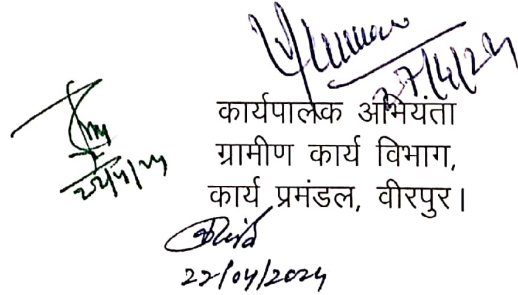 27/4/24
कार्यपालक अभियंता
ग्रामीण कार्य विभाग,
कार्य प्रमंडल, वीरपुर।
22/04/2024